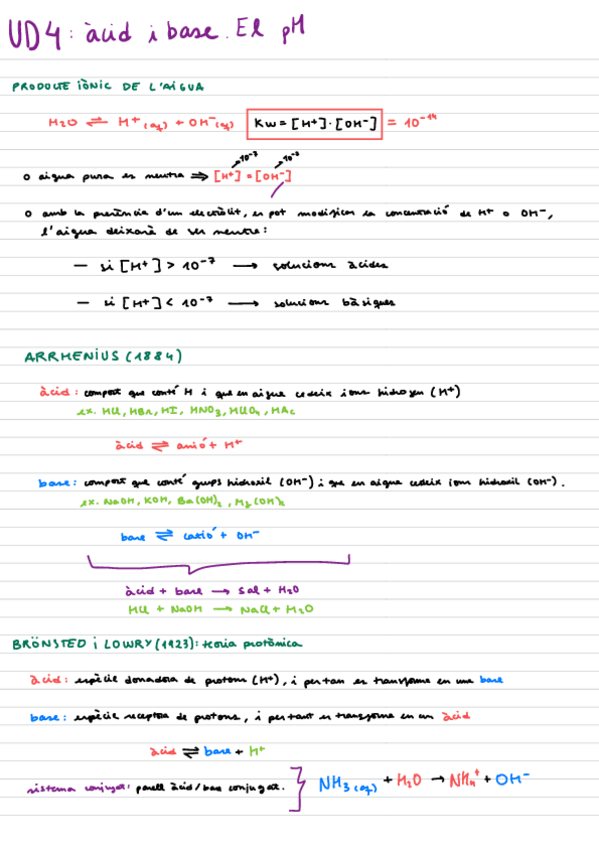 UD4: àcid i base. El pH
PRODUCTE IÒNIC DE L'AIGUA
H₂O ⇌ H⁺(aq) + OH⁻(aq) Kw = [H⁺]·[OH⁻] = 10⁻¹⁴
10⁻⁷ 10⁻⁷
o aigua pura es neutra ⇒ [H⁺] = [OH⁻]
o amb la presència d'un electròlit, es pot modificar la concentració de H⁺ o OH⁻,
l'aigua deixarà de ser neutra:
— si [H⁺] > 10⁻⁷ → solucions àcides
— si [H⁺] < 10⁻⁷ → solucions bàsiques
ARRHENIUS (1884)
àcid: compost que conté H i que en aigua cedeix ions hidrogen (H⁺)
ex. HCl, HBr, HI, HNO₃, HClO₄, HAc
àcid ⇌ anió + H⁺
base: compost que conté grups hidroxil (OH⁻) i que en aigua cedeix ions hidroxil (OH⁻).
ex. NaOH, KOH, Ba(OH)₂, Mg(OH)₂
base ⇌ catió + OH⁻
àcid + base → sal + H₂O
HCl + NaOH → NaCl + H₂O
BRÖNSTED i LOWRY (1923): teoria protònica
àcid: espècie donadora de protons (H⁺), i per tan es transforma en una base
base: espècie receptora de protons, i per tant es transforma en un àcid
àcid ⇌ base + H⁺
sistema conjugat: parell àcid/base conjugat. NH₃(aq) + H₂O → NH₄⁺ + OH⁻